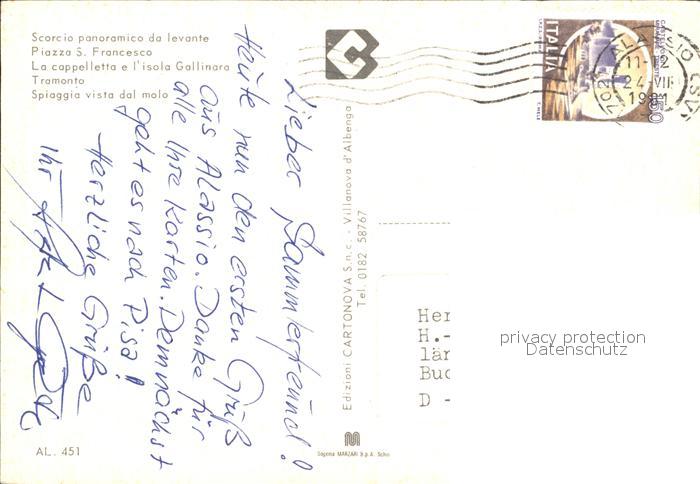 Scorcio panoramico da levante
Piazza S. Francesco
La cappelletta e l'isola Gallinara
Tramonto
Spiaggia vista dal molo
Lieber Sammlerfreund!
Heute nun den ersten Gruß
aus Alassio. Danke für
alle Ihre Karten. Demnächst
geht es nach Pisa!
Herzliche Grüße
Ihr
AL. 451
Edizioni CARTONOVA S.n.c. - Villanova d'Albenga
Tel. 0182 58767
Sagoma MARZARI S.p.A. Schio
ITALIA
11-12
24-VII
1981
Her
H.-
län
Buc
D -
privacy protection
Datenschutz